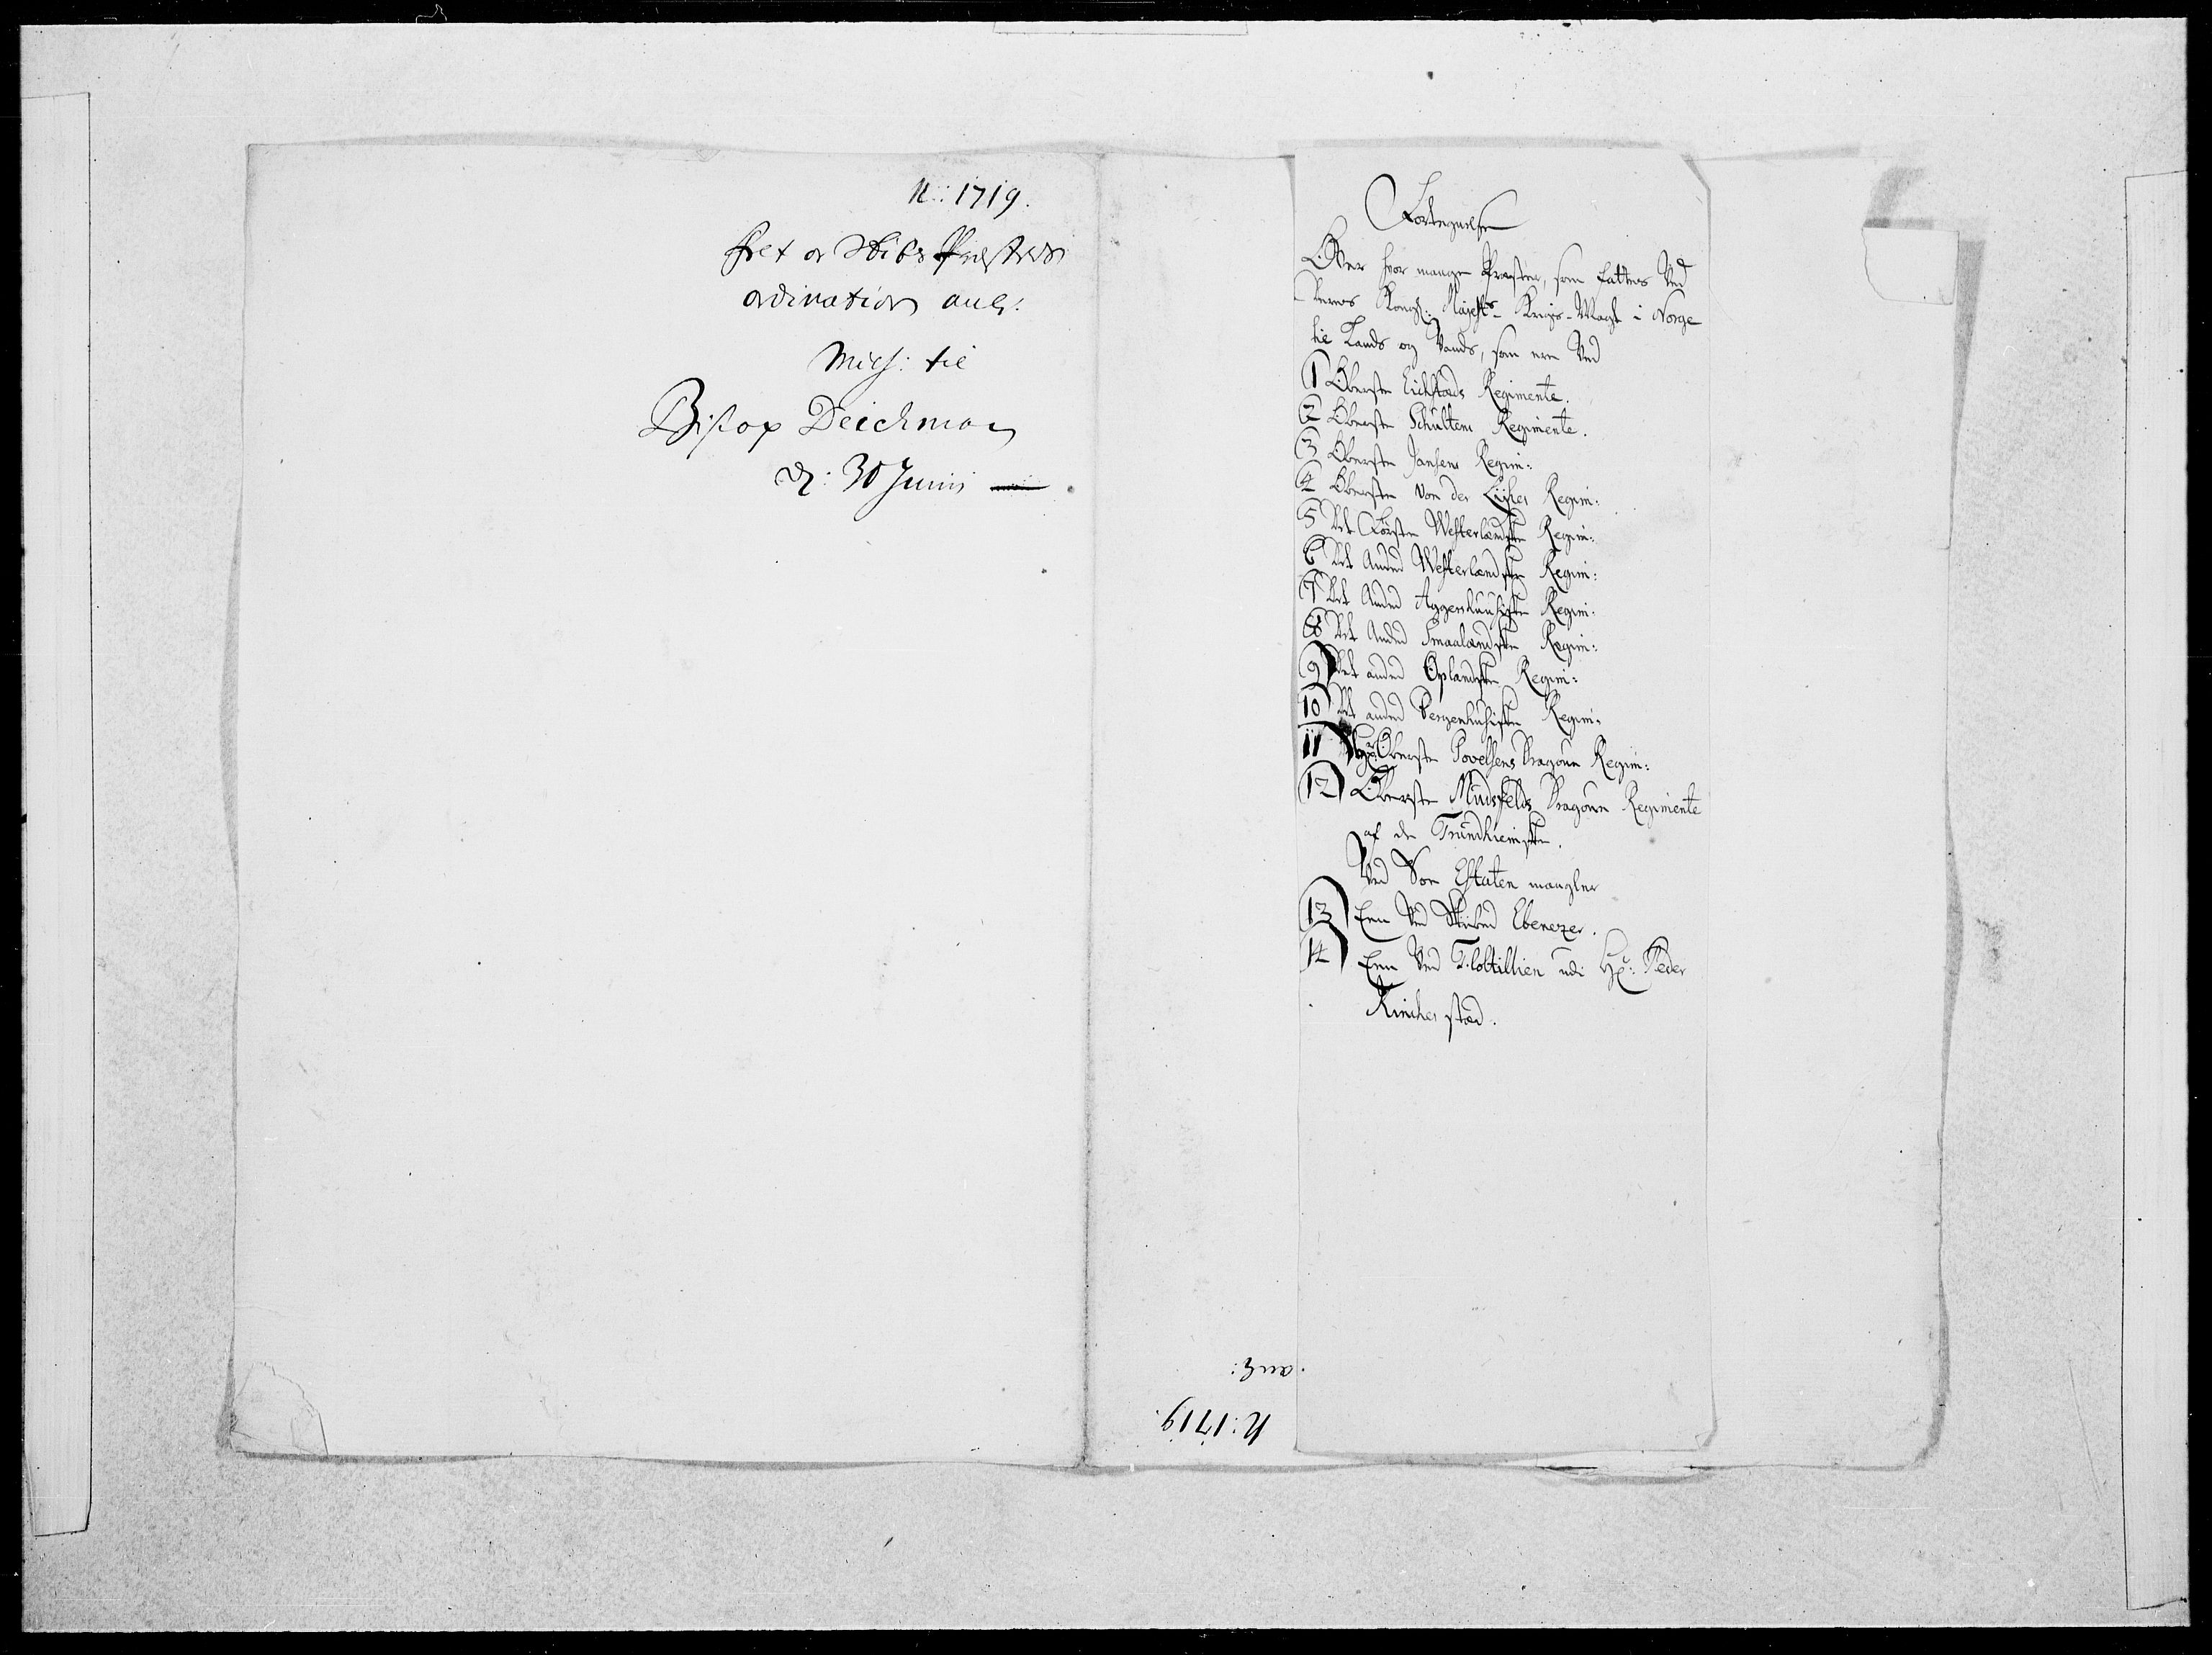 N: 1719.
Felt og Skibs Præsters
ordination ang:
Miss: til
Biskop Deichman
d: 30 Junii
Fortegnelse
Over hvor mange Præster, som fattes Ved
Deres Kongl: Majest:s Krigs-Magt i Norge
til Lands og Vands, som ere Ved
1 Obersten Eichstæds Regimente.
2 Obersten Schultens Regimente.
3 Obersten Jansens Regim:
4 Obersten Von der Lühes Regim:
5 Det Første Westerlendske Regim:
6 Det Andet Westerlendske Regim:
7 Det Andet Aggershuusiske Regim:
8 Det Andet Smaalendske Regim:
9 Det andet Oplandske Regim:
10 Det andet Bergenhusiske Regim:
11 Hr: Oberste Povelsens Dragoun Regim:
12 Oberste Mündsfelds Dragoun Regimente
af de Trundhiemske.
Ved Søe Estaten mangler
13 Een Ved Skibed Ebenezer.
14 Een Ved Flottillien udi Hr: Peder
Rinches stæd.
ang:
N: 1719.